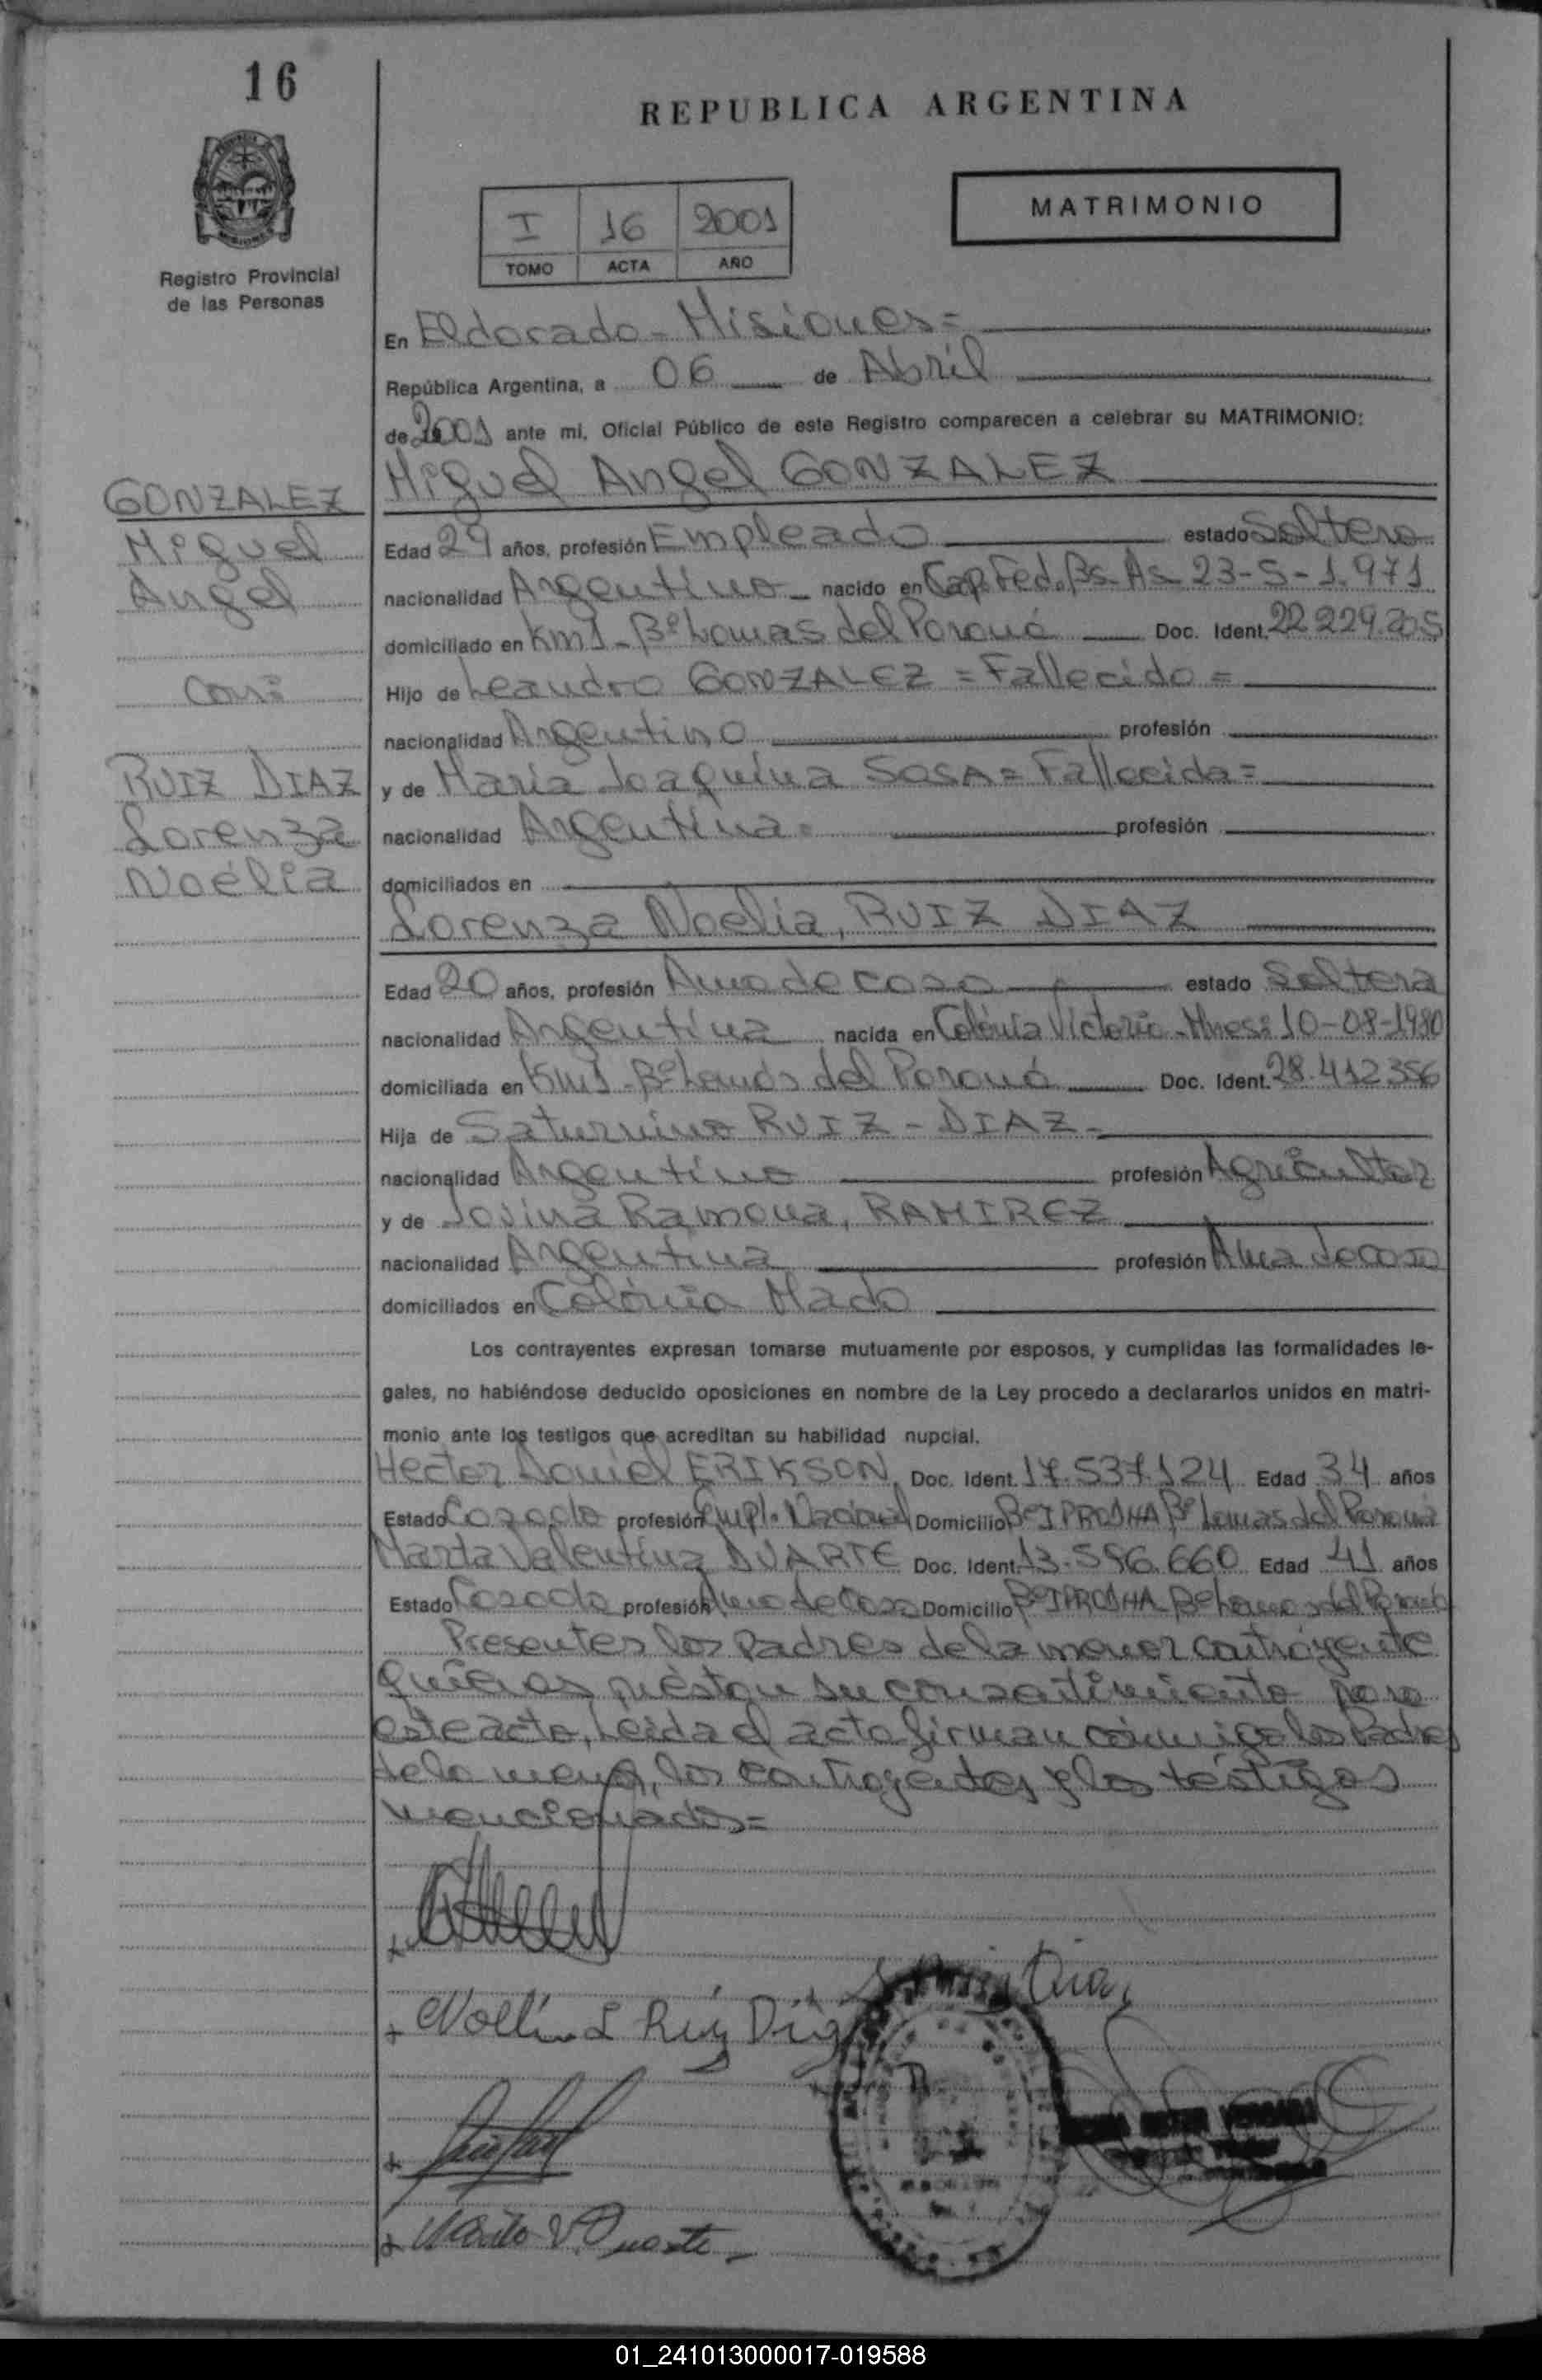 16
REPUBLICA ARGENTINA
MATRIMONIO
I 16 2001
TOMO ACTA AÑO
Registro Provincial
de las Personas
En Eldorado - Misiones =
República Argentina, a 06 de Abril
de 2001 ante mi, Oficial Público de este Registro comparecen a celebrar su MATRIMONIO:
Miguel Angel GONZALEZ
GONZALEZ
Miguel
Angel
Con:
RUIZ DIAZ
Lorenza
Noélia
Edad 29 años, profesión Empleado estado Soltero
nacionalidad Argentino nacido en Cap. Fed. Bs. As 23-5-1.971
domiciliado en Km 1 - Bº Lomas del Paraná Doc. Ident. 22.229.205
Hijo de Leandro GONZALEZ = Fallecido =
nacionalidad Argentino profesión
y de María Joaquina SOSA = Fallecida =
nacionalidad Argentina = profesión
domiciliados en
Lorenza Noelia, RUIZ DIAZ
Edad 20 años, profesión Ama de casa estado Soltera
nacionalidad Argentina nacida en Colónia Victoria - Mnes: 10-08-1980
domiciliada en Km 1 - Bº Lomas del Paraná Doc. Ident. 28.412.356
Hija de Saturnino RUIZ - DIAZ -
nacionalidad Argentino profesión Agricultor
y de Jovina Ramona, RAMIREZ
nacionalidad Argentina profesión Ama de casa
domiciliados en Colónia Mado
Los contrayentes expresan tomarse mutuamente por esposos, y cumplidas las formalidades le-
gales, no habiéndose deducido oposiciones en nombre de la Ley procedo a declararlos unidos en matri-
monio ante los testigos que acreditan su habilidad nupcial.
Hector Daniel ERIKSON Doc. Ident. 17.537.124 Edad 34 años
Estado Casado profesión Empl. Nacional Domicilio Bº IPRODHA Bº Lomas del Paraná
Marta Valentina DUARTE Doc. Ident. 13.596.660 Edad 41 años
Estado Casada profesión Ama de Casa Domicilio Bº IPRODHA Bº Lomas del Paraná
Presentes los Padres de la menor contrayente
quienes prestan su consentimiento para
este acto, Leida el acta firman conmigo los Padres
de la menor, los contrayentes y los testigos
mencionados =
L Ruiz Diaz
Ruiz Diaz
Marta V. Duarte
01_241013000017-019588